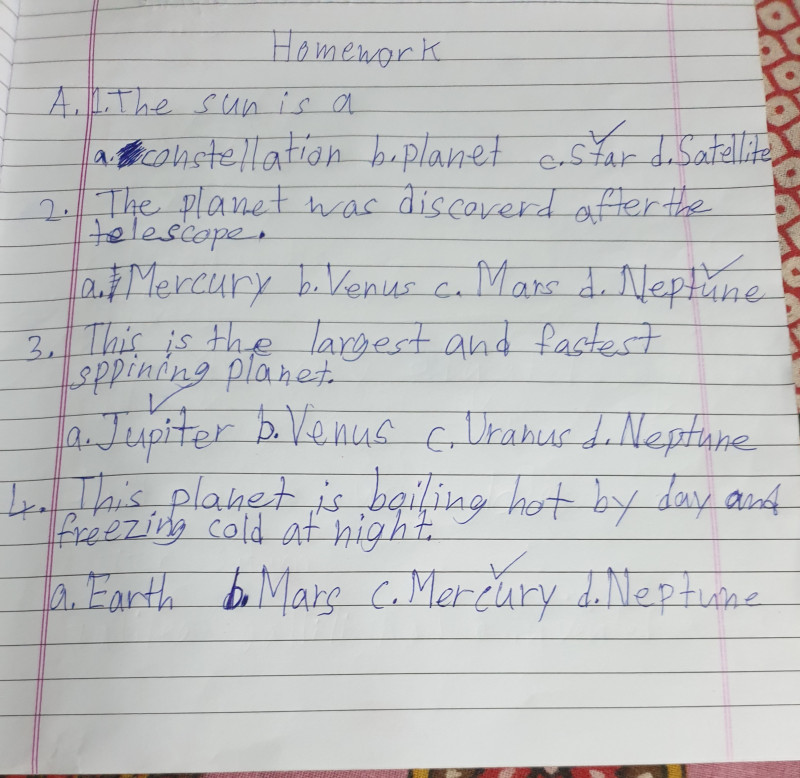 Homework
A. 1. The sun is a
a. constellation b. planet c. star d. Satellite
2. The planet was discoverd after the
telescope.
a. Mercury b. Venus c. Mars d. Neptune
3. This is the largest and fastest
sppining planet.
a. Jupiter b. Venus c. Uranus d. Neptune
4. This planet is boiling hot by day and
freezing cold at night.
a. Earth b. Mars c. Mercury d. Neptune